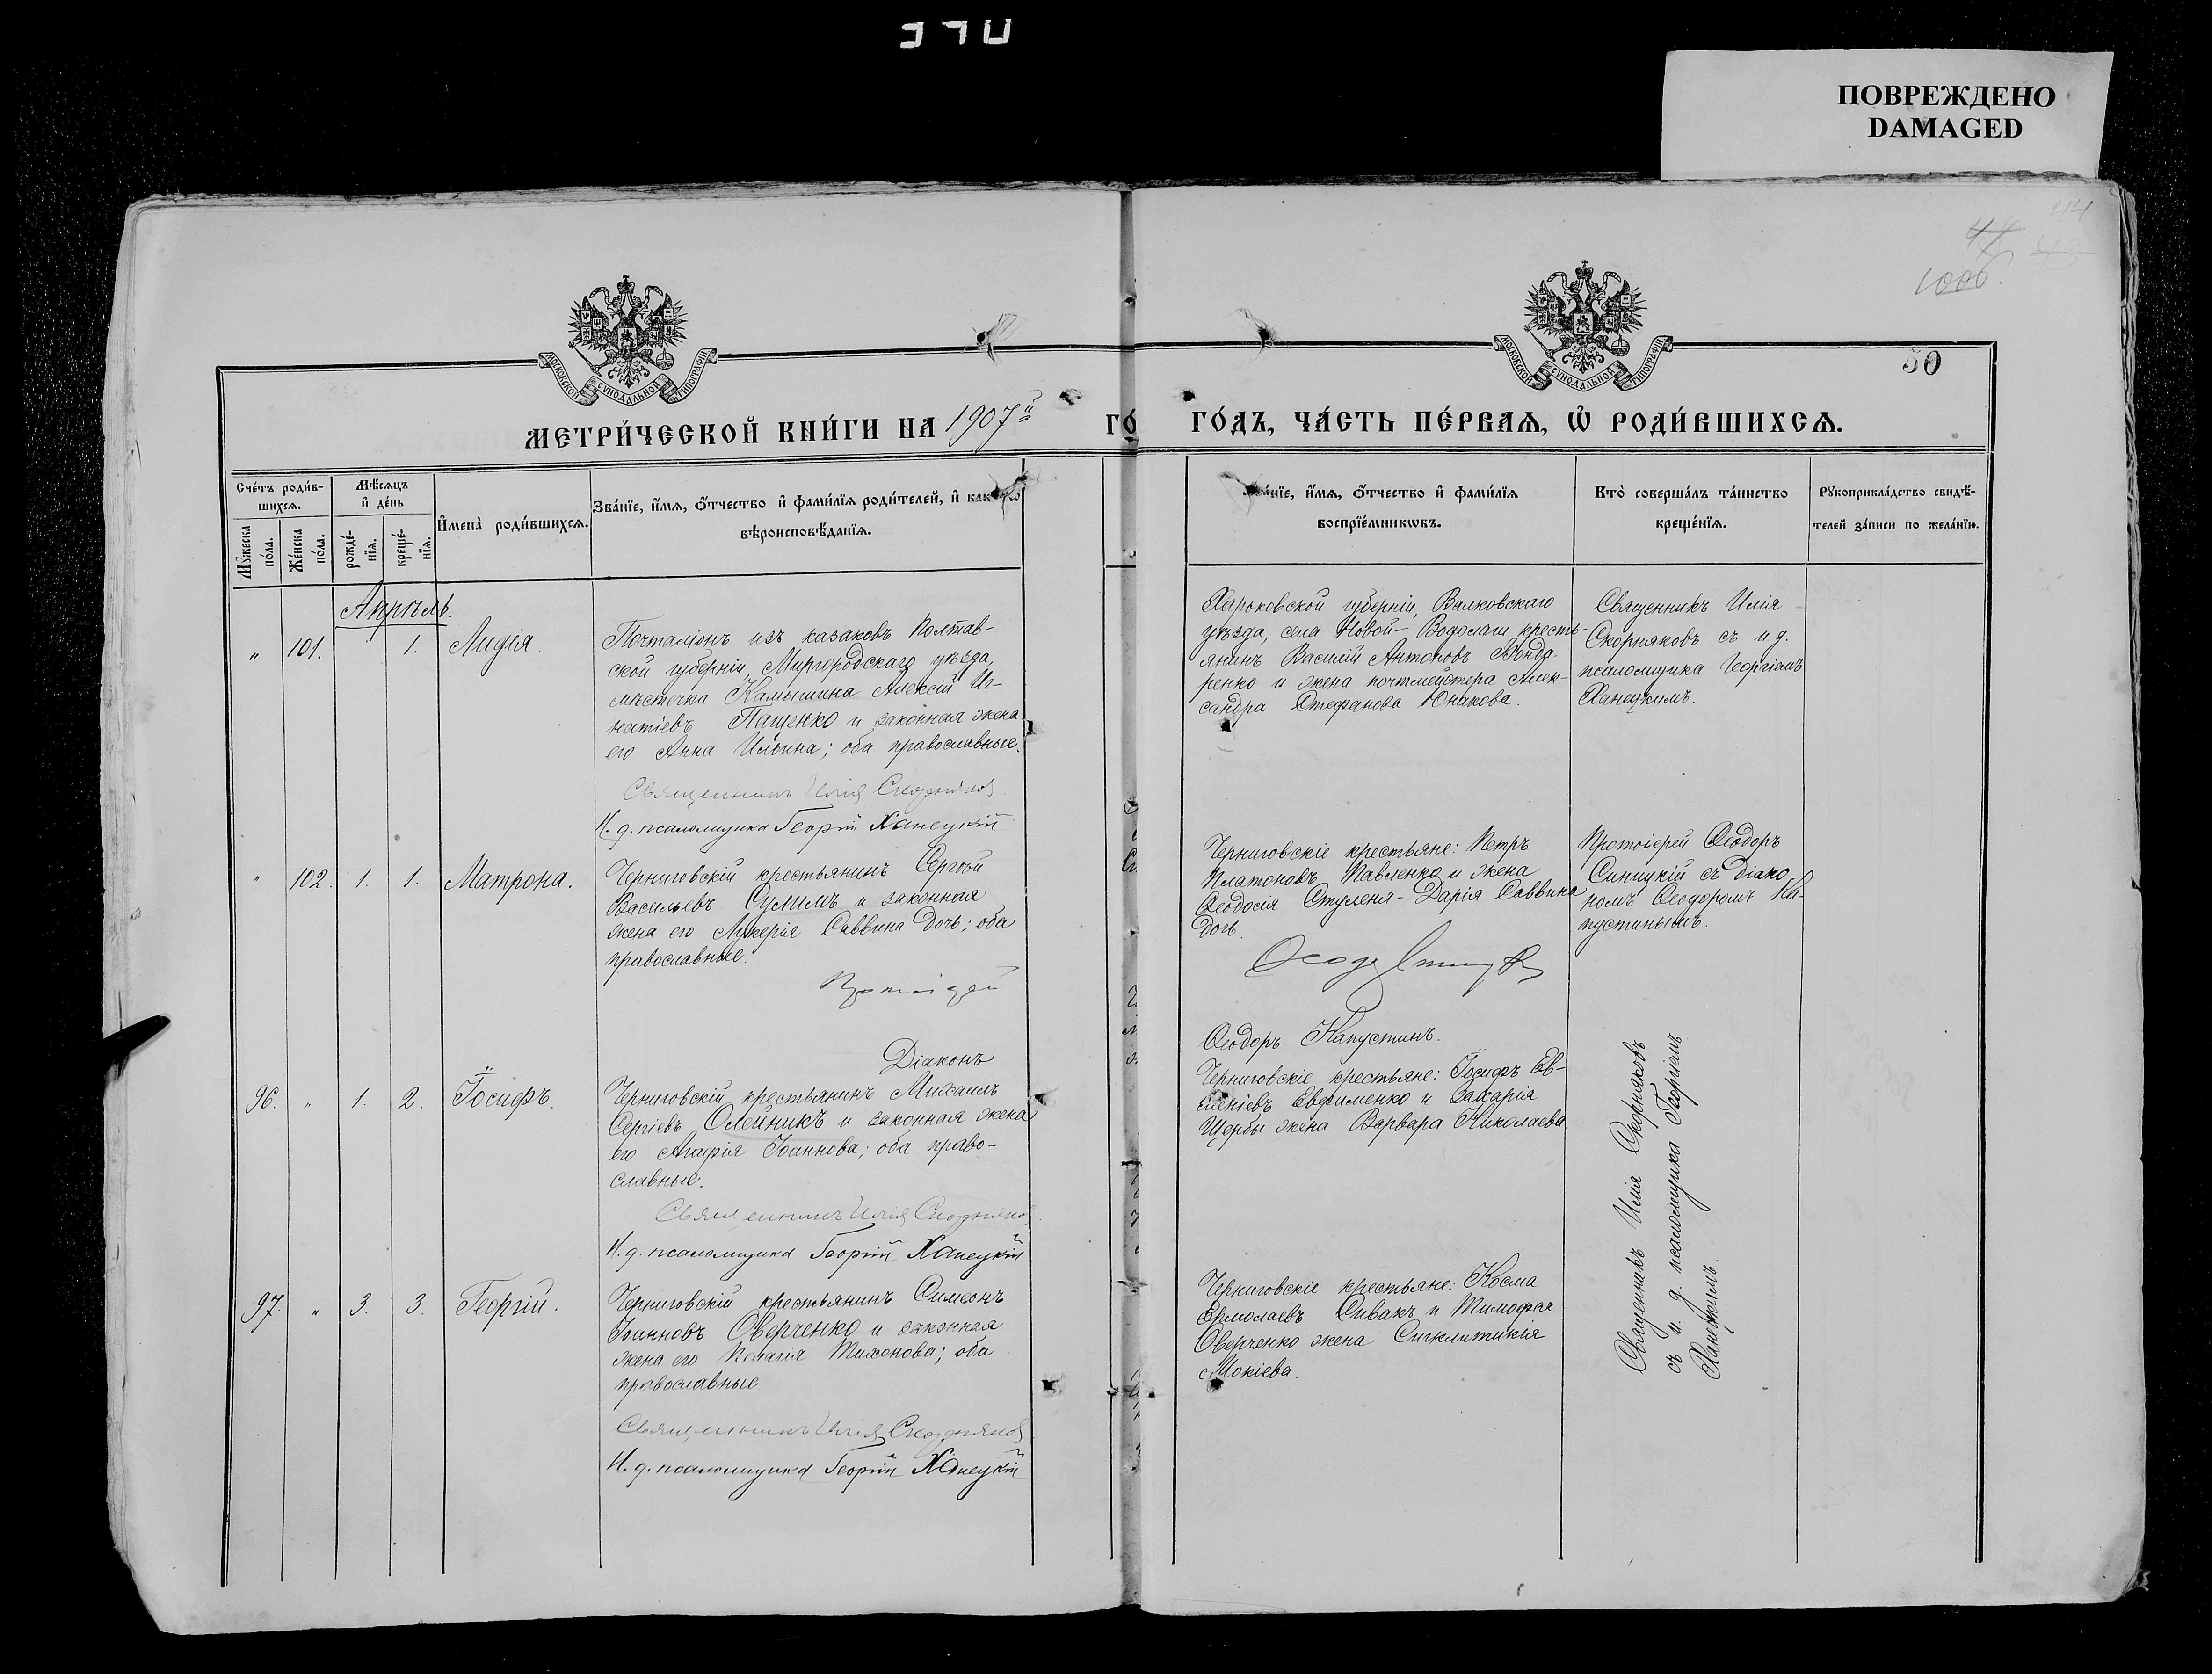 ПОВРЕЖДЕНО
DAMAGED
44
1006.
50
МОСКОВСКОЙ СУНОДАЛЬНОЙ ТИПОГРАФІИ
МОСКОВСКОЙ СУНОДАЛЬНОЙ ТИПОГРАФІИ
МЕТРИ́ЧЕСКОЙ КНИ́ГИ НА 1907й
ГО́ДЪ, ЧА́СТЬ ПЕ́РВАѦ, Ѡ РОДИ́ВШИХСѦ.
Сче́тъ роди́в-
шихсѧ.
Мѣ́сѧцъ
и҆ де́нь
Мꙋ́жеска
по́ла.
Же́нска
по́ла.
рожде́-
нїѧ.
креще́-
нїѧ.
И҆мена̀ роди́вшихсѧ.
Зва́нїе, и҆́мѧ, ѻ҆́тчество и҆ фами́лїѧ роди́телей, и҆
вѣроисповѣ́данїѧ.
Зва́нїе, и҆́мѧ, ѻ҆́тчество и҆ фами́лїѧ
воспрїе́мникѡвъ.
Кто̀ соверша́лъ та́инство
креще́нїѧ.
Рꙋкоприкла́дство свидѣ́-
телей за́писи по жела́нїю.
Апрѣль.
„ 101. 1. Лидія.
Почталіонъ изъ казаковъ Полтав-
ской губерніи, Миргородскаго уѣзда,
мѣстечка Камышина Алексій Иг-
натіевъ Пащенко и законная жена
его Анна Ильина; оба православные.
Священникъ Илія Скорняковъ
И. д. псаломщика Георгій Ханецкій
Харьковской губерніи, Валковскаго
уѣзда, села Новой-Водолаги кресть-
янинъ Василій Антоновъ Бонда-
ренко и жена почтмейстера Алек-
сандра Стефанова Юнакова.
Священникъ Илія
Скорняковъ съ и. д.
псаломщика Георгіемъ
Ханецкимъ.
„ 102. 1. 1. Матрона.
Черниговскій крестьянинъ Сергѣй
Васильевъ Сулимъ и законная
жена его Лукерія Саввина дочь; оба
православные.
Протоіерей
Черниговскіе крестьяне: Петръ
Платоновъ Павленко и жена
Ѳеодосія Ступеня- Дарія Саввина
дочь.
Протоіерей Ѳеодоръ
Синицкій съ діако-
номъ Ѳеодоромъ Ка-
пустинымъ.
Діаконъ
Ѳеодоръ Капустинъ.
96. „ 1. 2. Іосифъ.
Черниговскій крестьянинъ Михаилъ
Сергіевъ Олейникъ и законная жена
его Агафія Іоаннова; оба право-
славные.
Священникъ Илія Скорняковъ
И. д. псаломщика Георгій Ханецкій
Черниговскіе крестьяне: Іосифъ Ев-
меніевъ Евфименко и Захарія
Щербы жена Варвара Николаева
Священникъ Илія Скорняковъ
съ и. д. псаломщика Георгіемъ
Ханецкимъ.
97. „ 3. 3. Георгій.
Черниговскій крестьянинъ Симеонъ
Іоанновъ Оверченко и законная
жена его Пелагія Тихонова; оба
православные
Священникъ Илія Скорняковъ
И. д. псаломщика Георгій Ханецкій
Черниговскіе крестьяне: Косма
Ермолаевъ Сивакъ и Тимофея
Оверченко жена Синклитикія
Мокіева.